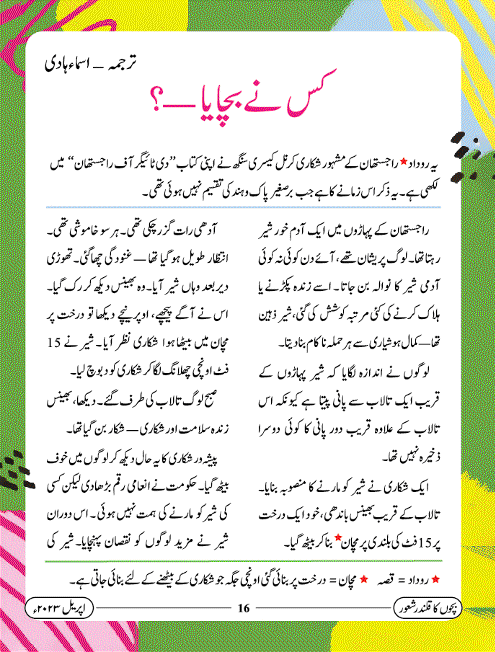 ترجمہ – اسماء ہادی
کس نے بچایا—؟
یہ روداد★ راجستھان کے مشہور شکاری کرنل کیسری سنگھ نے اپنی کتاب ”دی ٹائیگر آف راجستھان“ میں
لکھی ہے۔ یہ ذکر اس زمانے کا ہے جب برصغیر پاک و ہند کی تقسیم نہیں ہوئی تھی۔
راجستھان کے پہاڑوں میں ایک آدم خور شیر
رہتا تھا۔ لوگ پریشان تھے، آئے دن کوئی نہ کوئی
آدمی شیر کا نوالہ بن جاتا۔ اسے زندہ پکڑنے یا
ہلاک کرنے کی کئی مرتبہ کوشش کی گئی، شیر ذہین
تھا—کمال ہوشیاری سے ہر حملہ ناکام بنا دیتا۔
لوگوں نے اندازہ لگایا کہ شیر پہاڑوں کے
قریب ایک تالاب سے پانی پیتا ہے کیونکہ اس
تالاب کے علاوہ قریب دور پانی کا کوئی دوسرا
ذخیرہ نہیں تھا۔
ایک شکاری نے شیر کو مارنے کا منصوبہ بنایا۔
تالاب کے قریب بھینس باندھی، خود ایک درخت
پر 15 فٹ کی بلندی پر مچان★ بنا کر بیٹھ گیا۔
آدھی رات گزر چکی تھی۔ ہر سو خاموشی تھی۔
انتظار طویل ہو گیا تھا— غنودگی چھا گئی۔ تھوڑی
دیر بعد وہاں شیر آیا۔ وہ بھینس دیکھ کر رک گیا۔
اس نے آگے پیچھے، اوپر نیچے دیکھا تو درخت پر
مچان میں بیٹھا ہوا شکاری نظر آیا۔ شیر نے 15
فٹ اونچی چھلانگ لگا کر شکاری کو دبوچ لیا۔
صبح لوگ تالاب کی طرف گئے۔ دیکھا، بھینس
زندہ سلامت اور شکاری — شکار بن گیا تھا۔
پیشہ ور شکاری کا یہ حال دیکھ کر لوگوں میں خوف
بیٹھ گیا۔ حکومت نے انعامی رقم بڑھا دی لیکن کسی
کی شیر کو مارنے کی ہمت نہیں ہوئی۔ اس دوران
شیر نے مزید لوگوں کو نقصان پہنچایا۔ شیر کی
★ روداد = قصہ ★ مچان = درخت پر بنائی گئی اونچی جگہ جو شکاری کے بیٹھنے کے لئے بنائی جاتی ہے۔
بچوں کا قلندر شعور
16
اپریل ۲۰۲۳ء